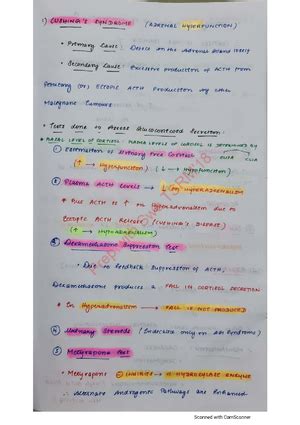 1) CUSHING'S SYNDROME (ADRENAL HYPERFUNCTION)
• Primary Cause: Defect on the Adrenal Gland itself
• Secondary Cause: Excessive production of ACTH from
Pituitary (or) Ectopic ACTH Production by other
Malignant Tumours
• Tests done to Assess Glucocorticoid Secretion:
• BASAL LEVEL OF CORTISOL: BASAL LEVELS OF CORTISOL IS DETERMINED BY
① Estimation of Urinary Free Cortisol ELISA CLIA
(↑ → Hyperfunction) (↓ → Hypofunction)
② Plasma ACTH Levels → ↓ in HYPERADRENALISM
* But ACTH is ↑ in Hyperadrenalism due to
Ectopic ACTH Release (CUSHING'S DISEASE)
(↑ → Hypoadrenalism)
③ Dexamethasone Suppression Test
• Due to feedback Suppression of ACTH,
Dexamethasone produces a FALL IN CORTISOL SECRETION
* In Hyperadrenalism → FALL IS NOT PRODUCED
④ Urinary Steroids (Indicate only on Syndroms)
⑤ Metyrapone Test
• Metyrapone inhibits → 11 HYDROXYLASE ENZYME
∴ Alternate Androgenic Pathways are Enhanced
Scanned with CamScanner